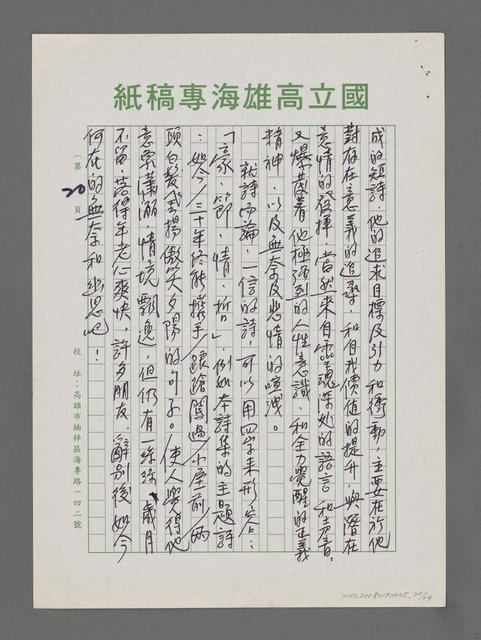 國立高雄海專專稿紙
成的短詩，他的追求目標及引力和衝動，主要在於他
對存在意義的追尋，和自我價值的提升，與潛在
意情的發揮，當然來自靈魂深处的語言和声音。
又爆茁著他極強烈的人性意識，和全力覺醒的正義
精神，以及無奈及悲情的喧洩。
就詩而論，一信的詩，可以用四字来形容：
「豪、節、情、哲」，例如本詩集的主題詩
：如今／三十年終能攜手／踉蹌闖過小屋前／兩
頭白髮飛揚傲笑夕陽的句子。使人覺得他
意象瀟灑，情境飄逸，但仍有一絲絲，歲月
不留，落得年老心爽快，許多朋友，辭别後如今
何在的無奈和幽思吧！
（第20頁）
校址：高雄市楠梓區海專路一四二號